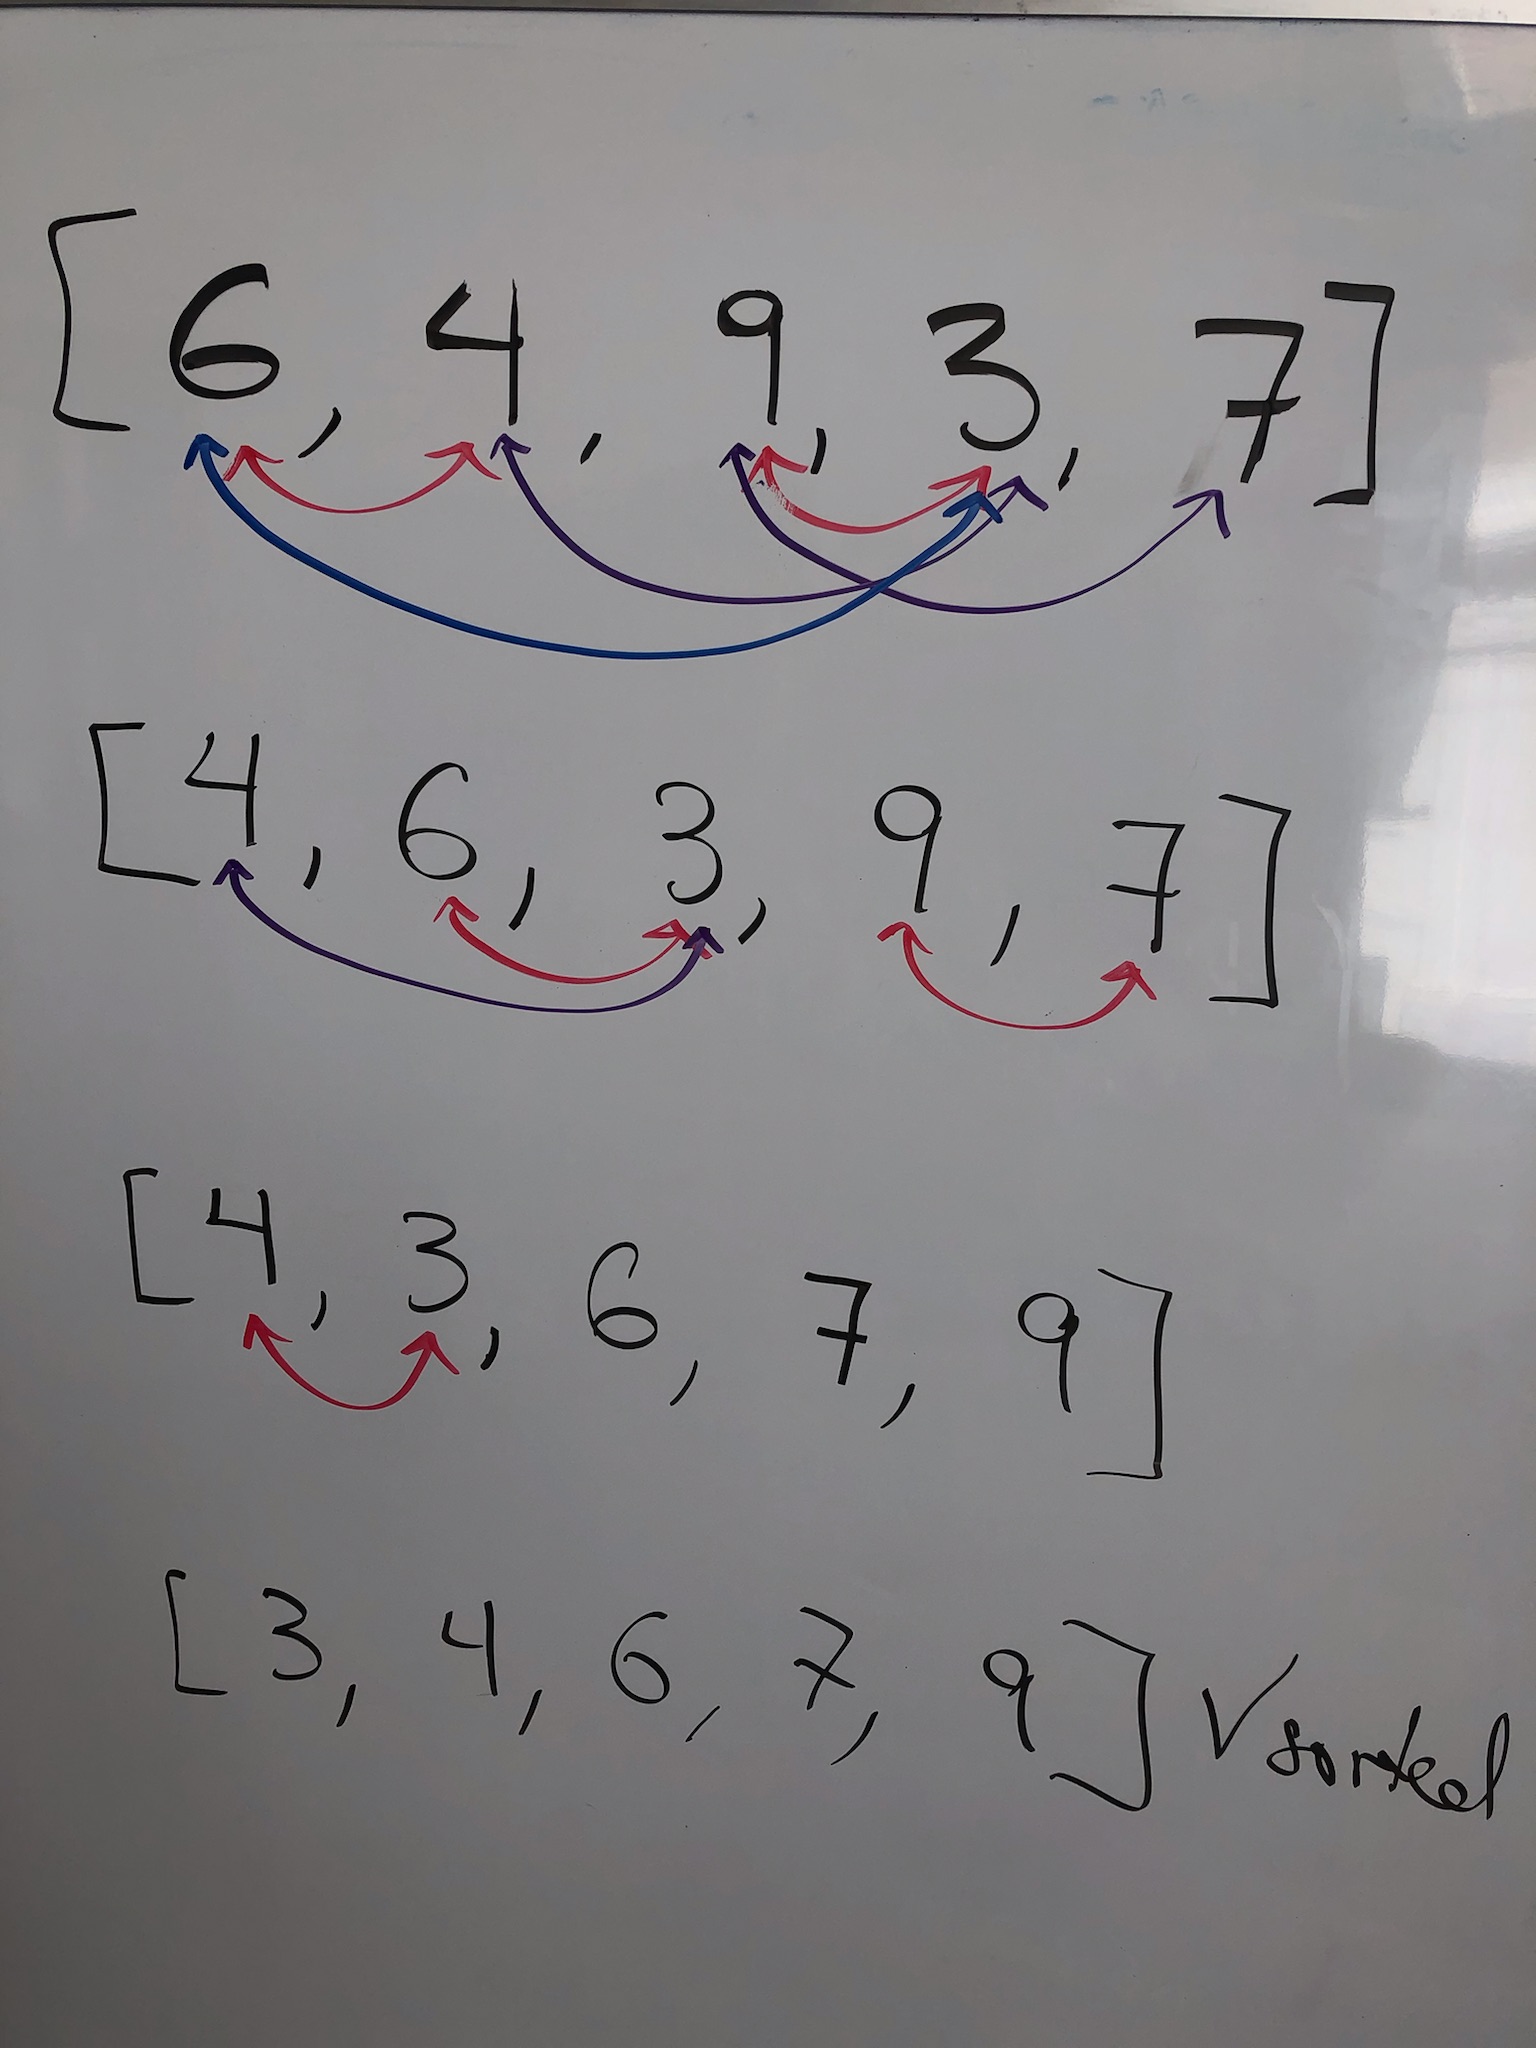 [6, 4, 9, 3, 7]
[4, 6, 3, 9, 7]
[4, 3, 6, 7, 9]
[3, 4, 6, 7, 9] ✓ sorted